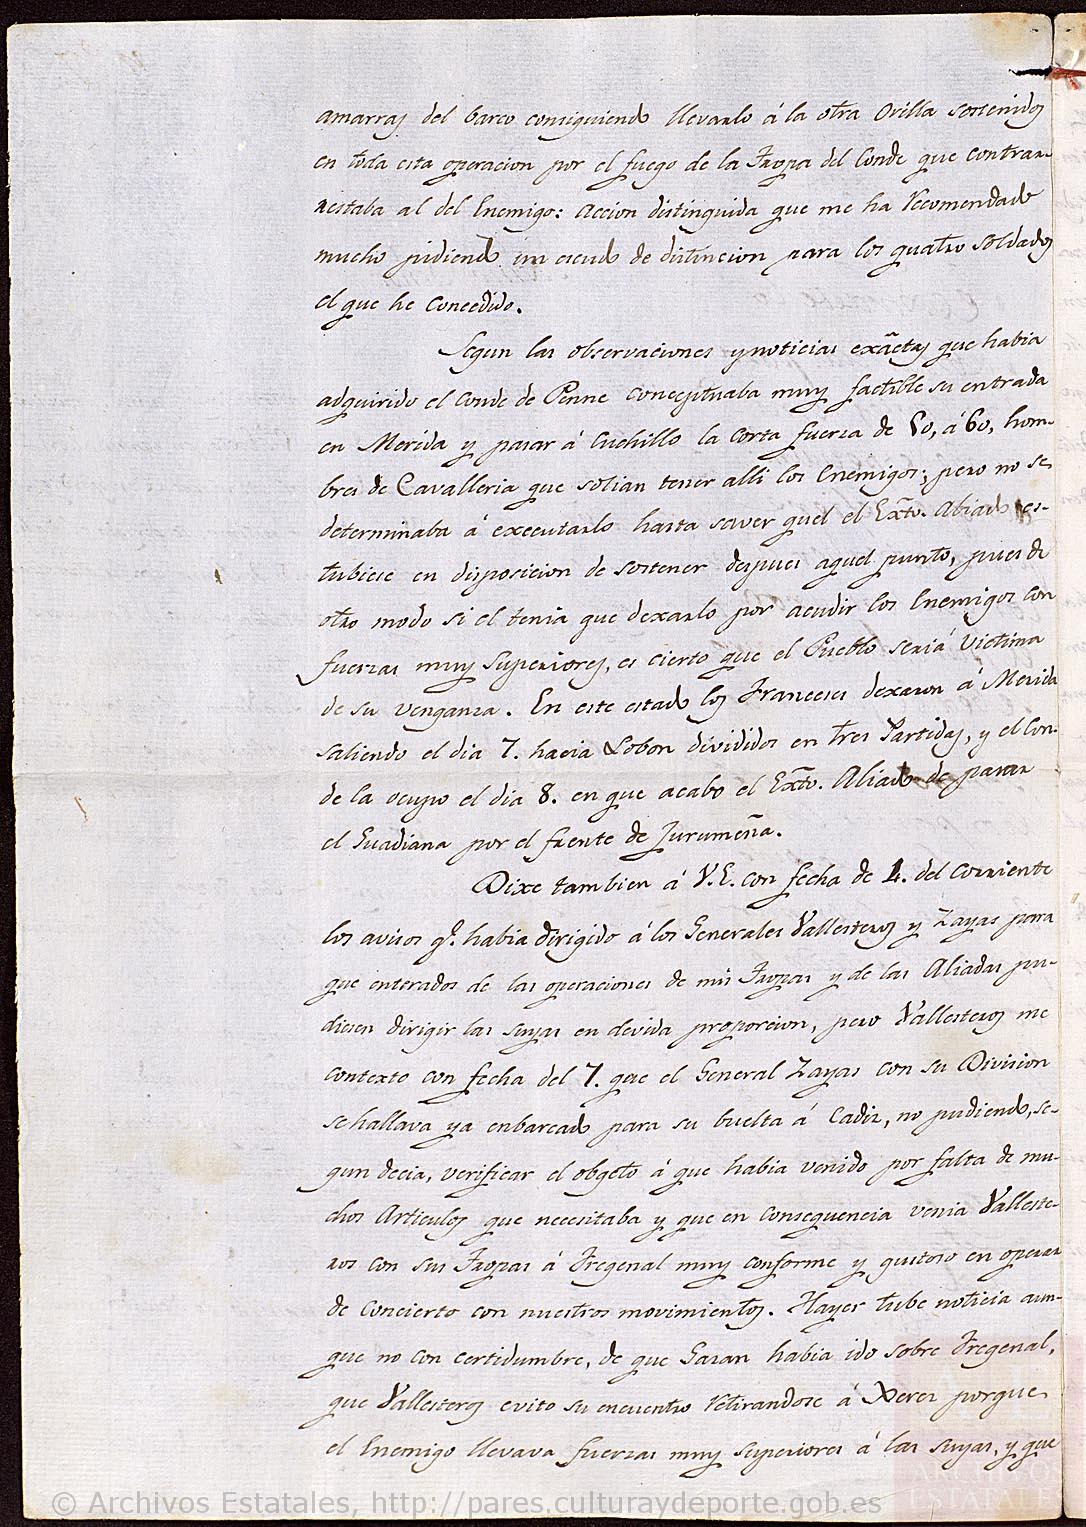 amarras del barco consiguiendo llevarlo á la otra Orilla sostenidos
en toda esta operacion por el fuego de la Tropa del Conde que contrar-
restaba al del Enemigo: Accion distinguida que me ha recomendado
mucho pidiendo un escudo de distincion para los quatro soldados
el que he concedido.
Segun las observaciones y noticias exâctas que habia
adquirido el Conde de Penne conceptuaba muy factible su entrada
en Merida y pasar á Cuchillo la corta fuerza de 50, á 60, hom-
bres de Cavalleria que solian tener alli los Enemigos; pero no se
determinaba á executarlo hasta saver que el Exto. Aliado es-
tubiese en disposicion de sostener despues aquel punto, pues de
otro modo si el tenia que dexarlo por acudir los Enemigos con
fuerzas muy superiores, es cierto que el Pueblo seriá victima
de su venganza. En este estado los Franceses dexaron á Merida
saliendo el dia 7. hacia Lobon divididos en tres Partidas, y el Con-
de la ocupo el dia 8. en que acabo el Exto. Aliado de pasar
el Guadiana por el frente de Jurumeña.
Dixe tambien á V.E. con fecha de 4. del corriente
los avisos q.e habia dirigido á los Generales Vallesteros y Zayas para
que enterados de las operaciones de mis Tropas y de las Aliadas pu-
diesen dirigir las suyas en devida proporcion, pero Vallesteros me
contexto con fecha del 7. que el General Zayas con su Division
se hallava ya enbarcado para su buelta á Cadiz, no pudiendo, se-
gun decia, verificar el obgeto á que habia venido por falta de mu-
chos Articulos que necesitaba y que en consequencia venia Valleste-
ros con sus Tropas á Fregenal muy conforme y gustoso en operar
de concierto con nuestros movimientos. Hayer tube noticia aun-
que no con certidumbre, de que Gazan habia ido sobre Fregenal,
que Vallesteros evito su encuentro retirandose á Xerez porque
el Enemigo llevava fuerzas muy superiores á las suyas, y que
© Archivos Estatales, http://pares.culturaydeporte.gob.es
ARCHIVOS
ESTATALES